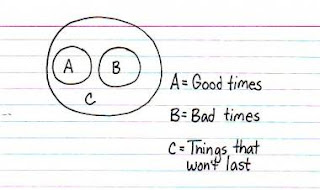 A B
C
A = Good times
B = Bad times
C = Things that
won't last